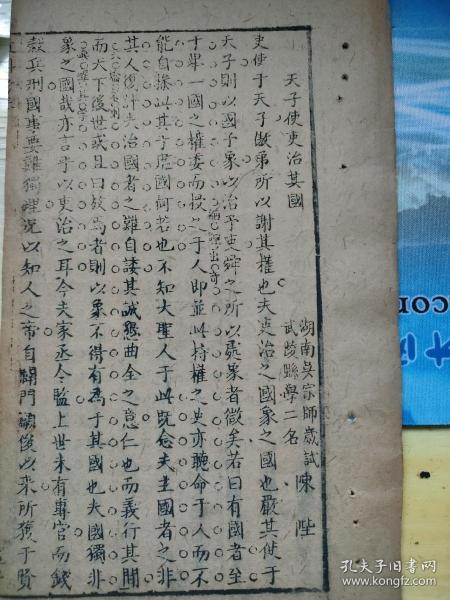 天子使吏治其國
湖南吳宗師歲試
武陵縣學二名
陳陛
吏使于天子傲弟所以謝其權也夫吏治之國象之國也嚴其使于
天子則以國予象以治予吏舜之所以處象者微矣若曰有國者至
于舉一國之權委而授之于人即並此持權之吏亦聽命于人而不
能自操以其于虎國何若也不知大聖人于此既念夫主國者之非
其人復計夫治國者之難自諉其誠懇曲全之意仁也而義行其間
而天下後世或且曰放焉者則以象不得有為于其國也夫國獨非
象之國哉亦言乎以吏治之耳今夫家丞令監上世未有專官而錢
穀兵刑國事要難獨理況以知人之帝自闢門
以來所獲于賢
孔夫子旧书网